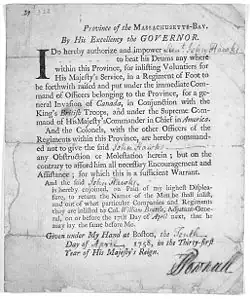 Province of the MASSACHUSETTS-BAY.
By His Excellency the GOVERNOR.
I Do hereby authorize and impower Lieut. John Hawks
to beat his Drums any where
within this Province, for inlisting Volunteers for
His Majesty's Service, in a Regiment of Foot to
be forthwith raised and put under the immediate Com-
mand of Officers belonging to the Province, for a ge-
neral Invasion of Canada, in Conjunction with the
King's British Troops, and under the Supreme Com-
mand of His Majesty's Commander in Chief in America.
And the Colonels, with the other Officers of the
Regiments within this Province, are hereby command-
ed not to give the said John Hawks
any Obstruction or Molestation herein; but on the
contrary to afford him all necessary Encouragement and
Assistance; for which this is a sufficient Warrant.
And the said John Hawks
is hereby enjoined, on Pain of my highest Displea-
sure, to return the Names of the Men he shall inlist,
and out of what particular Companies and Regiments
they are inlisted to Col. William Brattle, Adjutant-Gene-
ral, on or before the 17th Day of April next, that he
may lay the same before Me.
Given under My Hand at Boston, the Tenth
Day of April 1758, in the Thirty-first
Year of His Majesty's Reign.
TPownall